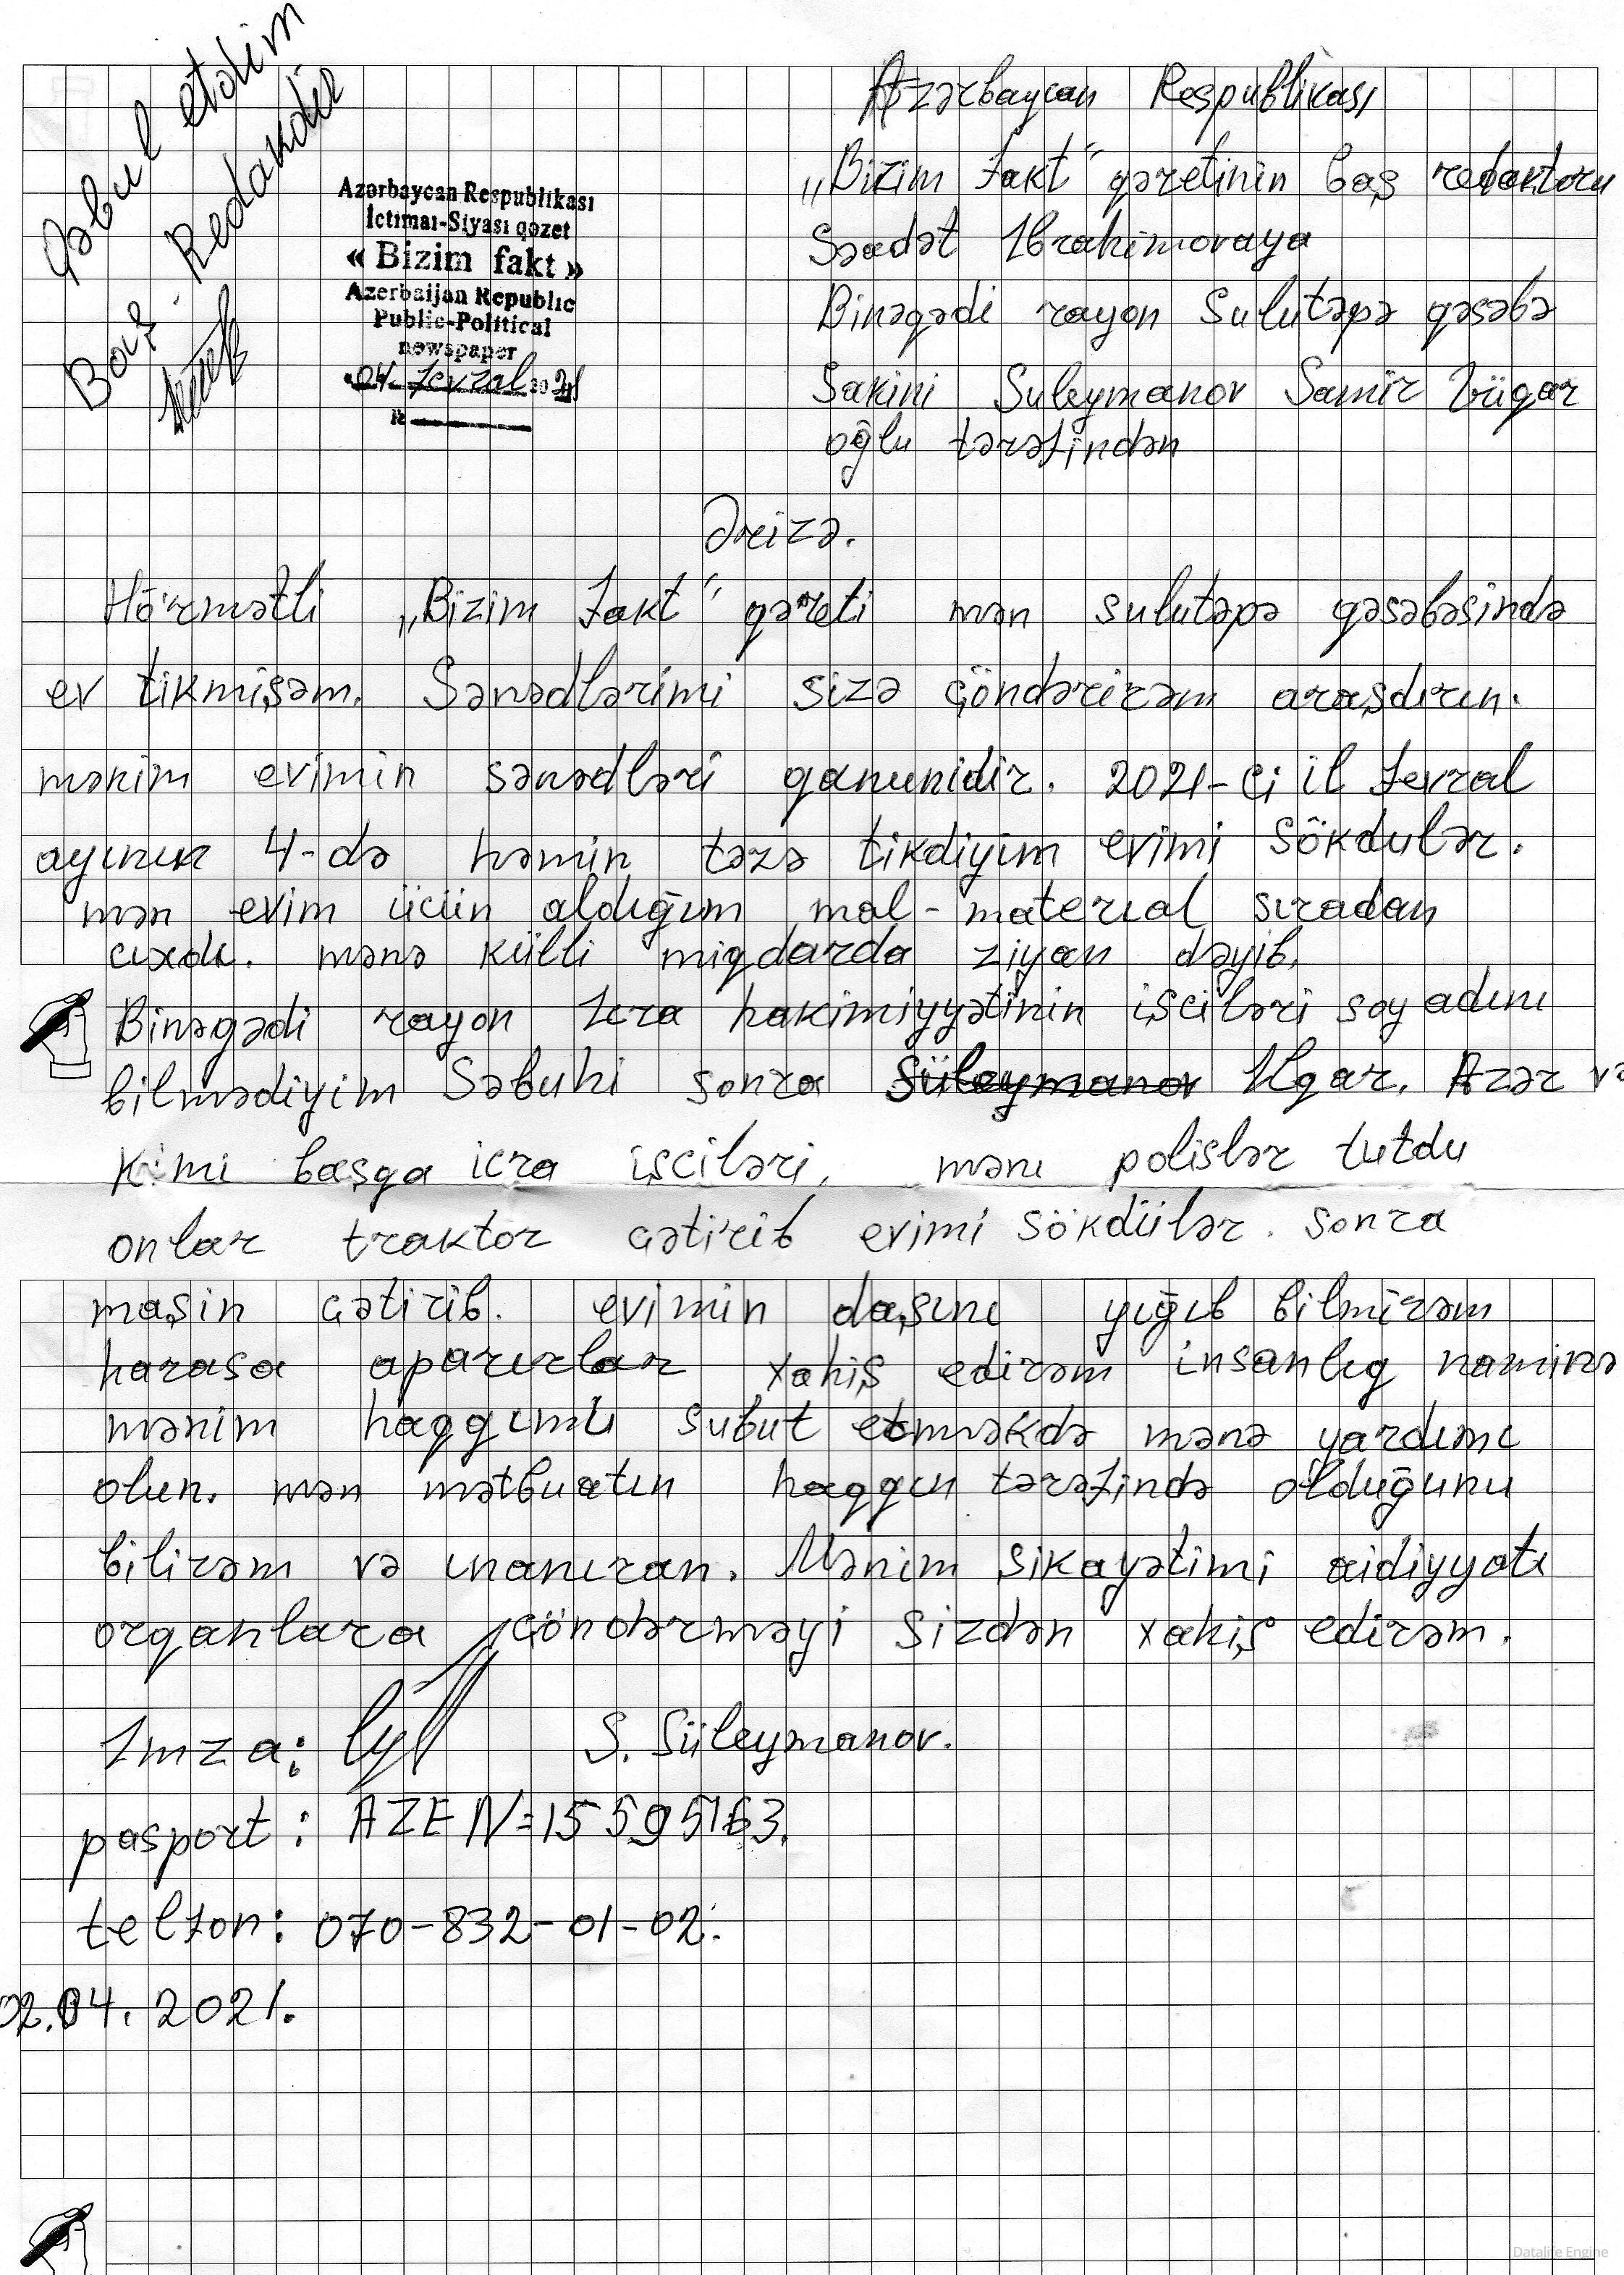 Qəbul etdim
Baş. Redakdir
Azərbaycan Respublikası
İctimai-Siyasi qəzet
« Bizim fakt »
Azerbaijan Republic
Public-Political
newspaper
"04" fevral 2021
№
Azərbaycan Respublikası
„Bizim fakt" qəzetinin baş redaktoru
Səadət Ibrahimovaya
Binəqədi rayon Sulutəpə qəsəbə
Sakini Suleymanov Samir Vüqar
oğlu tərəfindən
Ərizə.
Hörmətli „Bizim fakt" qəzeti mən sulutəpə qəsəbəsində
ev tikmişəm. Sənədlərimi sizə göndərirəm araşdırın.
mənim evimin sənədləri qanunidir. 2021-ci il fevral
ayının 4-də həmin təzə tikdiyim evimi sökdulər.
mən evim üçün aldığım mal-material sıradan
cıxdı. mənə külli miqdarda ziyan dəyib.
Binəqədi rayon Icra hakimiyyətinin işciləri soyadını
bilmədiyim Səbuhi sonra Süleymanov Ilqar. Azər və
kimi başqa icra işciləri, məni polislər tutdu
onlar traktor gətirib evimi sökdülər. sonra
maşin gətirib. evimin daşını yığıb bilmirəm
harasa aparırlar xahiş edirəm insanlıq naminə
mənim haqqımı subut etməkdə mənə yardımı
olun. mən mətbuatın haqqın tərəfində olduğunu
bilirəm və ınanıran. Mənim şikayətimi aidiyyatı
orqanlara göndərməyi sizdən xahiş edirəm.
Imza: S. Süleymanov.
pasport: AZE N=15595163.
telfon: 070-832-01-02.
02.04.2021.
Datalife Engine